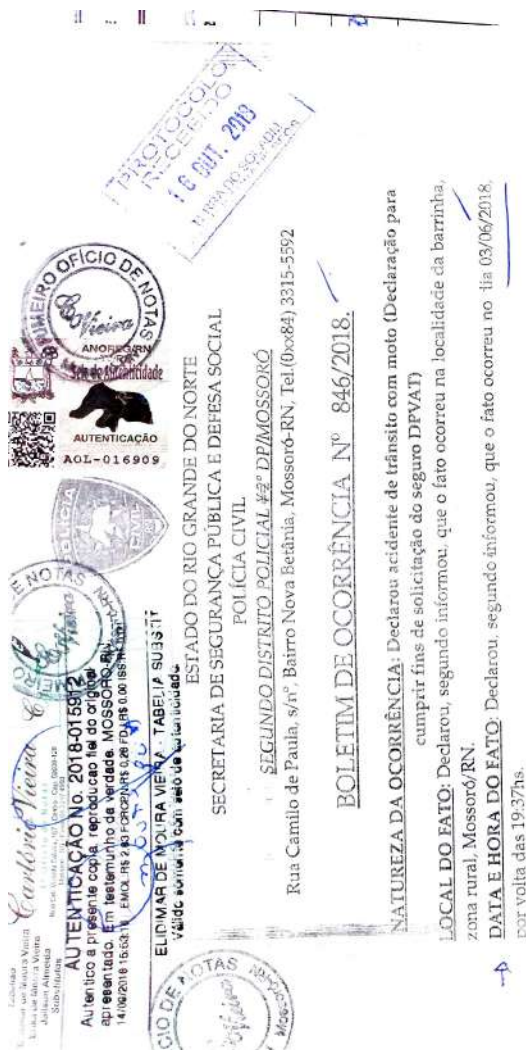 Cartório Vieira
AUTENTICAÇÃO No. 2018-015912
Autentico a presente copia, reproducao fiel do original
apresentado. Em testemunho da verdade. MOSSORO RN
14/09/2018
ELIDIMAR DE MOURA VIEIRA - TABELIA SUBSTIT
Válido somente com selo de autenticidade
PRIMEIRO OFÍCIO DE NOTAS
Vieira
ANOREG/RN
Selo de Autenticidade
AUTENTICAÇÃO
AOL-016909
POLÍCIA CIVIL
PROTOCOLO
RECEBIDO
16 OUT. 2018
ESTADO DO RIO GRANDE DO NORTE
SECRETARIA DE SEGURANÇA PÚBLICA E DEFESA SOCIAL
POLÍCIA CIVIL
SEGUNDO DISTRITO POLICIAL #2º DP/MOSSORÓ
Rua Camilo de Paula, s/nº, Bairro Nova Betânia, Mossoró-RN, Tel.(0xx84) 3315-5592
BOLETIM DE OCORRÊNCIA Nº 846/2018.
NATUREZA DA OCORRÊNCIA: Declarou acidente de trânsito com moto (Declaração para
cumprir fins de solicitação do seguro DPVAT)
LOCAL DO FATO: Declarou, segundo informou, que o fato ocorreu na localidade da barrinha,
zona rural, Mossoró/RN.
DATA E HORA DO FATO: Declarou, segundo informou, que o fato ocorreu no dia 03/06/2018,
por volta das 19:37hs.